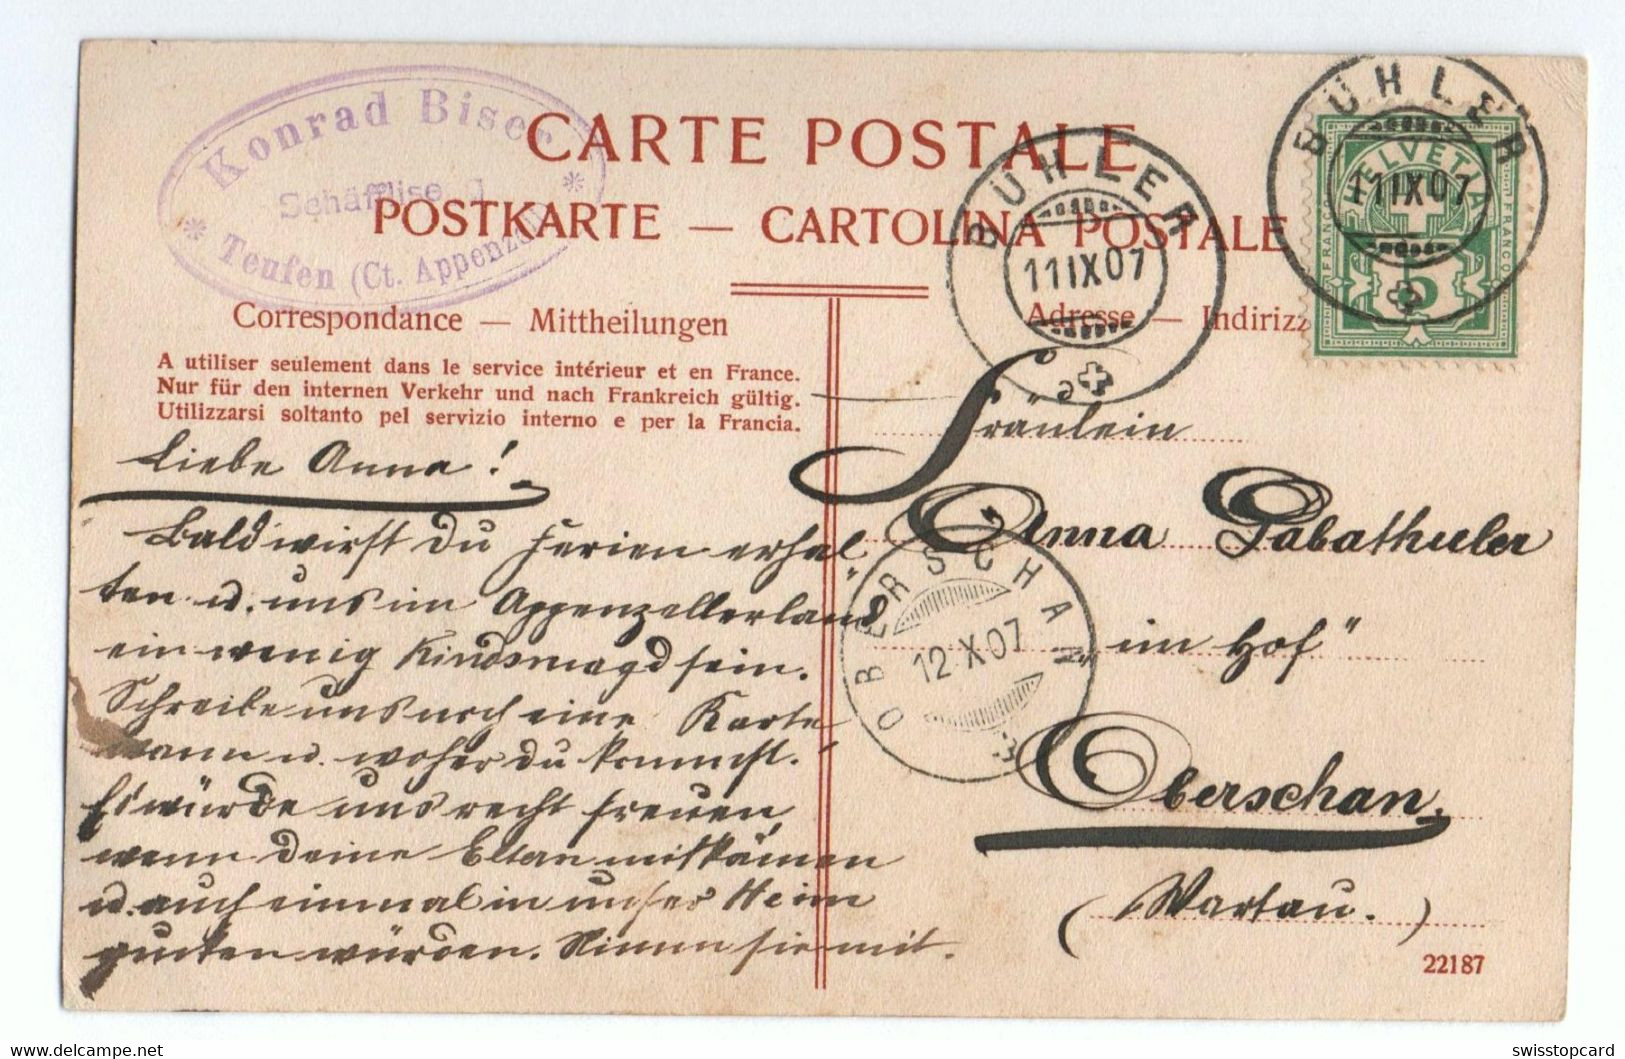 Konrad Biser
Teufen (Ct. Appenzell)
CARTE POSTALE
POSTKARTE — CARTOLINA POSTALE
Correspondance — Mittheilungen
Adresse — Indirizz
A utiliser seulement dans le service intérieur et en France.
Nur für den internen Verkehr und nach Frankreich gültig.
Utilizzarsi soltanto pel servizio interno e per la Francia.
BÜHLER
11 IX 07
BÜHLER
11 IX 07
HELVETIA
FRANCO
FRANCO
5
Liebe Anna!
Bald wirst du Ferien erhal„
ten u. uns im Appenzellerland
ein wenig Kindsmagd sein.
Schreibe uns noch eine Karte
wann u. woher du kommst.
Es würde uns recht freuen,
wenn deine Eltern mitkämen
u. auch einmal in unser Heim
gucken würden. Nimm sie mit.
Fräulein
Anna Gabathuler
„im Hof"
Oberschan.
(Wartau.)
OBERSCHAN
12 X 07
22187
swisstopcard